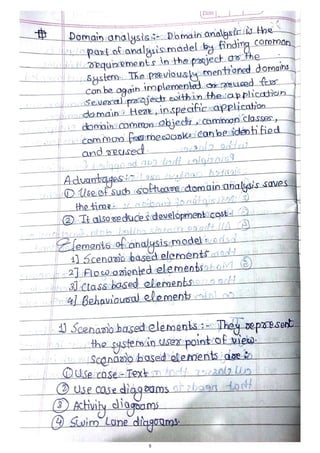 Date
Domain analysis :- Domain analysis is the
part of analysis model by finding common
requirements in the project or the
system. The previously mentioned domains
can be again implemented or reused for
several projects within the application
domain. Here, in specific application
domain common objects, common classes,
common frameworks can be identified
and reused
Advantages :-
① Use of such software domain analysis saves
the time.
② It also reduces development cost
Elements of analysis model :-
1] Scenario based elements
2] Flow oriented elements
3] Class based elements
4] Behavioural elements
1) Scenario based elements :- They represent
the system in user point of view.
Scenario based elements are :
① Use case - Text
② Use case diagrams
③ Activity diagrams
④ Swim lane diagrams